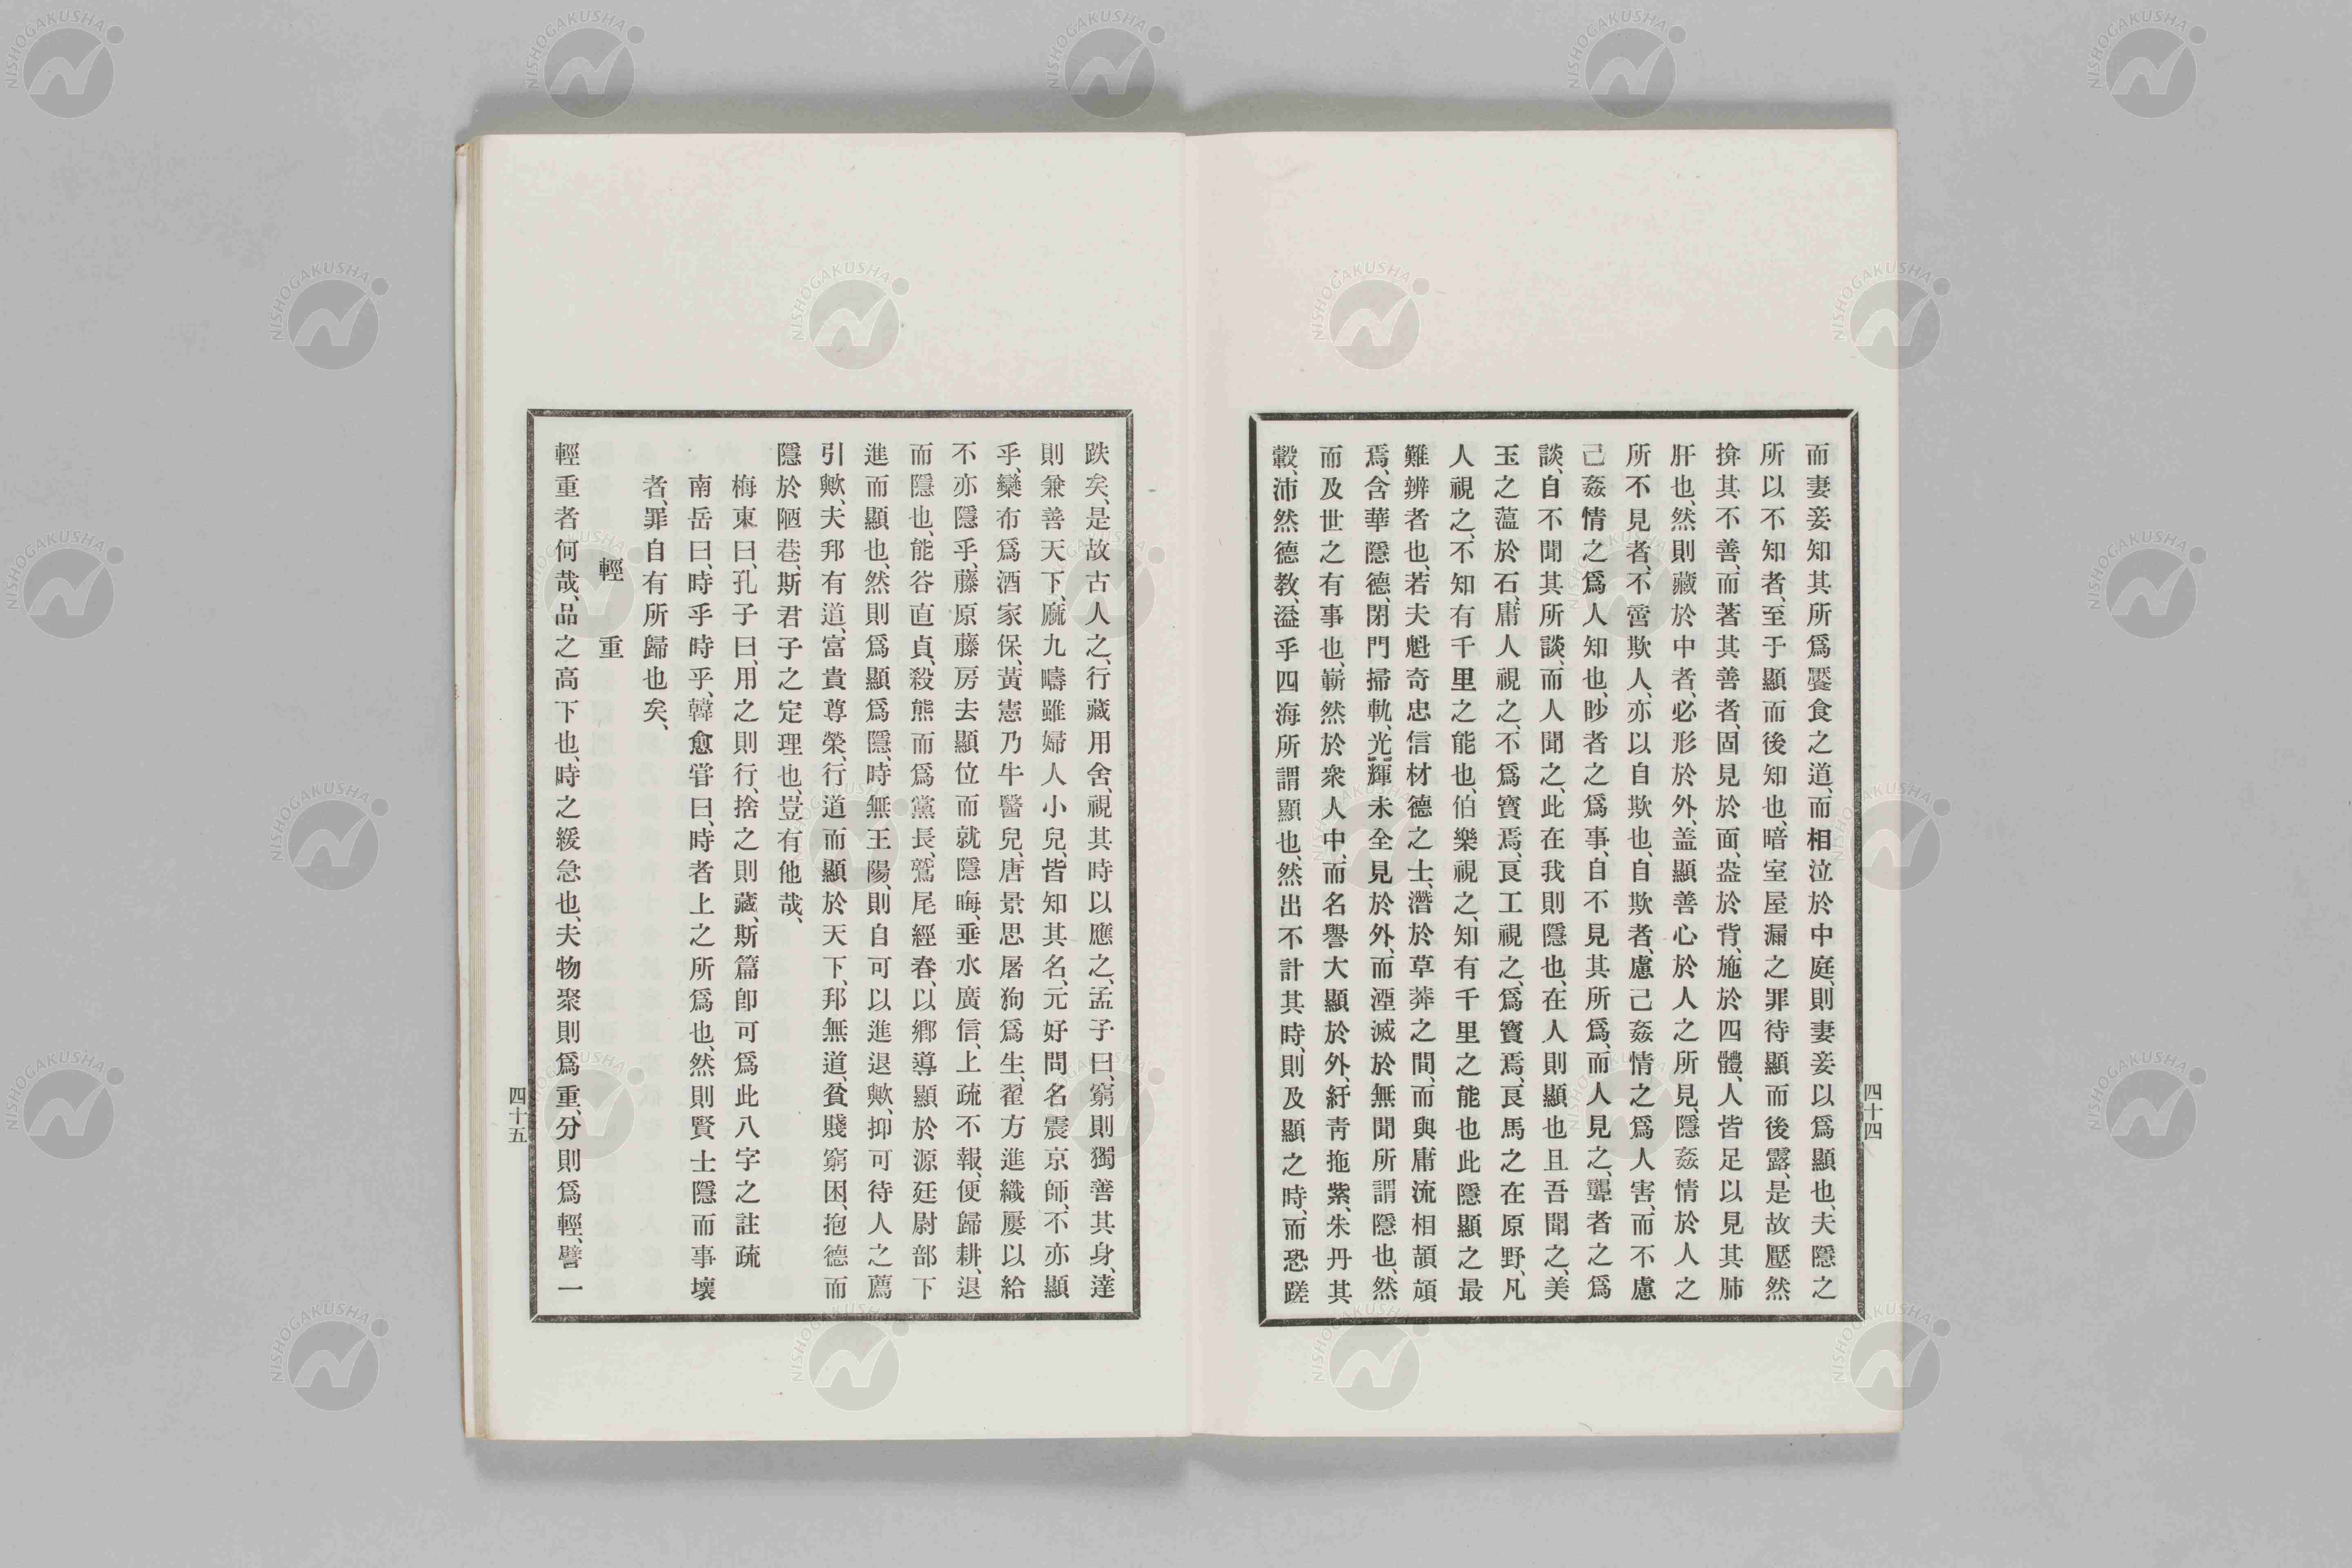 而妻妾知其所爲饜食之道、而相泣於中庭、則妻妾以爲顯也、夫隱之
所以不知者、至于顯而後知也、暗室屋漏之罪待顯而後露、是故壓然
揜其不善、而著其善者、固見於面、盎於背、施於四體、人皆足以見其肺
肝也、然則藏於中者、必形於外、盖顯善心於人之所見、隱姦情於人之
所不見者、不啻欺人、亦以自欺也、自欺者、慮己姦情之爲人害、而不慮
己姦情之爲人知也、眇者之爲事、自不見其所爲、而人見之、聾者之爲
談、自不聞其所談、而人聞之、此在我則隱也、在人則顯也且吾聞之、美
玉之薀於石、庸人視之、不爲寶焉、良工視之、爲寶焉、良馬之在原野、凡
人視之、不知有千里之能也、伯樂視之、知有千里之能也此隱顯之最
難辨者也、若夫魁奇忠信材德之士、潛於草莽之間、而與庸流相頡頏
焉、含華隱德、閉門掃軌、光輝未全見於外、而湮滅於無聞所謂隱也、然
而及世之有事也、嶄然於衆人中、而名譽大顯於外、紆靑拖紫、朱丹其
轂、沛然德敎、溢乎四海所謂顯也、然出不計其時、則及顯之時、而恐蹉
四十四
跌矣、是故古人之、行藏用舍、視其時以應之、孟子曰、窮則獨善其身、達
則兼善天下、龐九疇雖婦人小兒、皆知其名、元好問名震京師、不亦顯
乎、欒布爲酒家保、黃憲乃牛醫兒、唐景思屠狗爲生、翟方進織屨以給
不亦隱乎、藤原藤房去顯位而就隱晦、垂水廣信、上疏不報、便歸耕、退
而隱也、能谷直貞、殺熊而爲黨長、鷲尾經春、以鄕導顯於源廷尉部下
進而顯也、然則爲顯爲隱、時無王陽、則自可以進退歟、抑可待人之薦
引歟、夫邦有道、富貴尊榮、行道而顯於天下、邦無道、貧賤窮困、抱德而
隱於陋巷、斯君子之定理也、豈有他哉、
梅東曰、孔子曰、用之則行、捨之則藏、斯篇卽可爲此八字之註疏
南岳曰、時乎時乎、韓愈嘗曰、時者上之所爲也、然則賢士隱而事壞
者、罪自有所歸也矣、
輕重
輕重者何哉、品之高下也、時之緩急也、夫物聚則爲重、分則爲輕、譬一
四十五